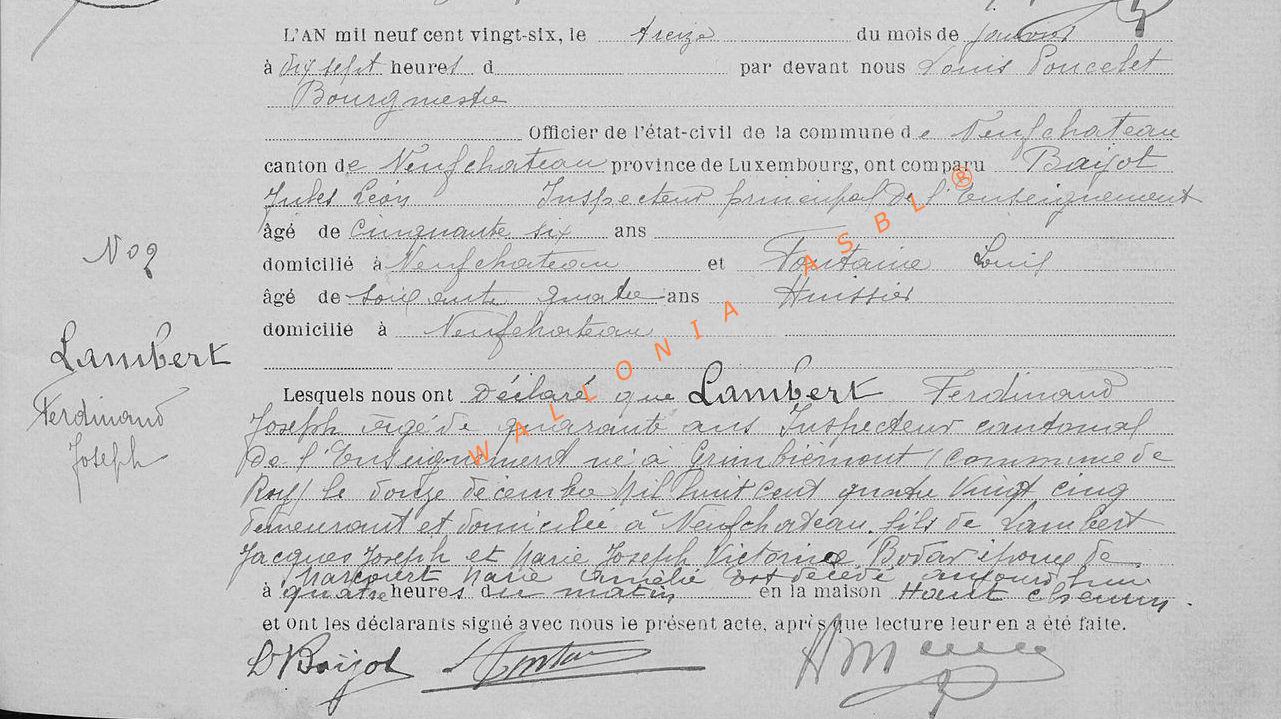 L'AN mil neuf cent vingt-six, le treize du mois de janvier
à dix sept heures d par devant nous Louis Poncelet
Bourgmestre
Officier de l'état-civil de la commune de Neufchateau
canton de Neufchateau province de Luxembourg, ont comparu Baijot
Jules Léon Inspecteur principal de l'Enseignement
âgé de cinquante six ans
domicilié à Neufchateau et Fontaine Louis
N° 2
âgé de soixante quatre ans Huissier
domicilié à Neufchateau
Lambert
Ferdinand
Joseph
Lesquels nous ont Déclaré que Lambert Ferdinand
Joseph âgé de quarante ans Inspecteur cantonal
de l'Enseignement né à Grimbiémont (commune de
Roy) le douze décembre Mil huit cent quatre vingt cinq
demeurant et domicilié à Neufchateau, fils de Lambert
Jacques Joseph et Marie Joseph Victorine Bodar époux de
Harcourt Marie Amélie est décédé aujourd'hui
à quatre heures du matin en la maison Haut chemin.
et ont les déclarants signé avec nous le présent acte, après que lecture leur en a été faite.
Baijot
WALLONIA ASBL ®